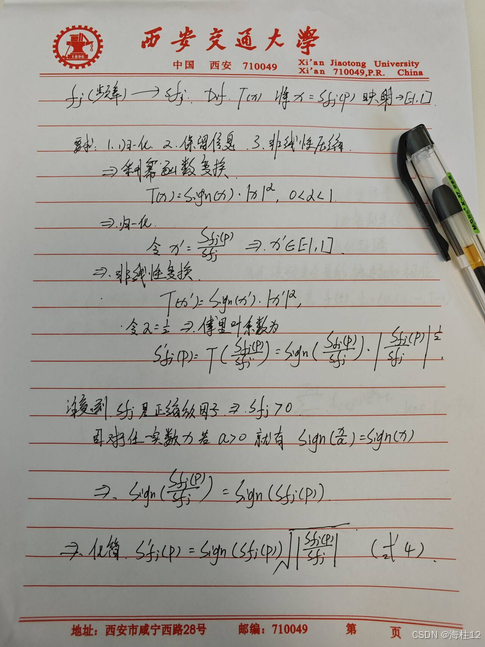 西安交通大學
中国 西安 710049
Xi'an Jiaotong University
Xi'an 710049,P.R. China
fj (频率) → Sfj. Def. T(x) 将 x = Sfj(p) 映射→[-1,1]
要求. 1.归一化 2.保留信息 3.非线性压缩
⇒ 利用幂函数变换
T(x)=Sign(x)·|x|^α, 0<α<1
⇒ 归一化
令 x' = Sfj(p)/Sfj ⇒ x'∈[-1,1].
⇒ 非线性变换.
T(x')=Sign(x')·|x'|^α,
令α=1/2 ⇒ 傅里叶系数为
S'fj(p)= T(Sfj(p)/Sfj)=Sign(Sfj(p)/Sfj)·|Sfj(p)/Sfj|^1/2,
注意到 Sfj 是正缩放因子 ⇒ Sfj>0
即对任一实数 x 若 a>0 就有 Sign(x/a)=Sign(x)
⇒ Sign(Sfj(p)/Sfj) = Sign(Sfj(p)).
⇒ 化简. S'fj(p) = Sign(Sfj(p))√|Sfj(p)/Sfj| (式4).
地址：西安市咸宁西路28号 邮编：710049 第 页
CSDN @海柱12